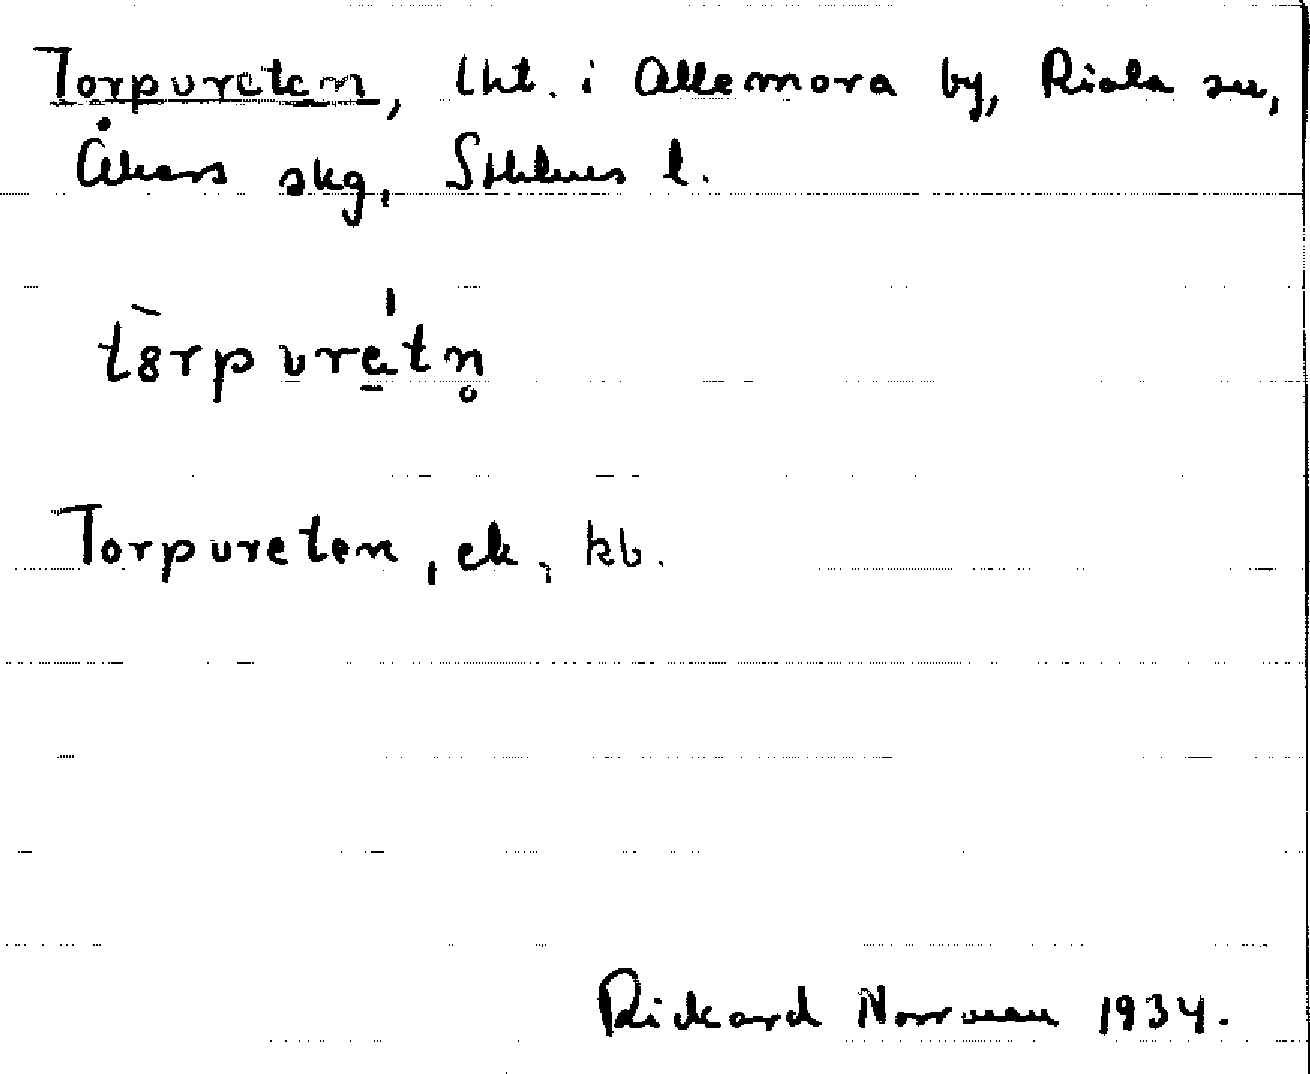 Torpureten, lht. i Allemora by, Riala sn,
Åkers skg, Sthlms l.
tȯrpurètn̥
Torpureten, ek, kb.
Rickard Norrman 1934.